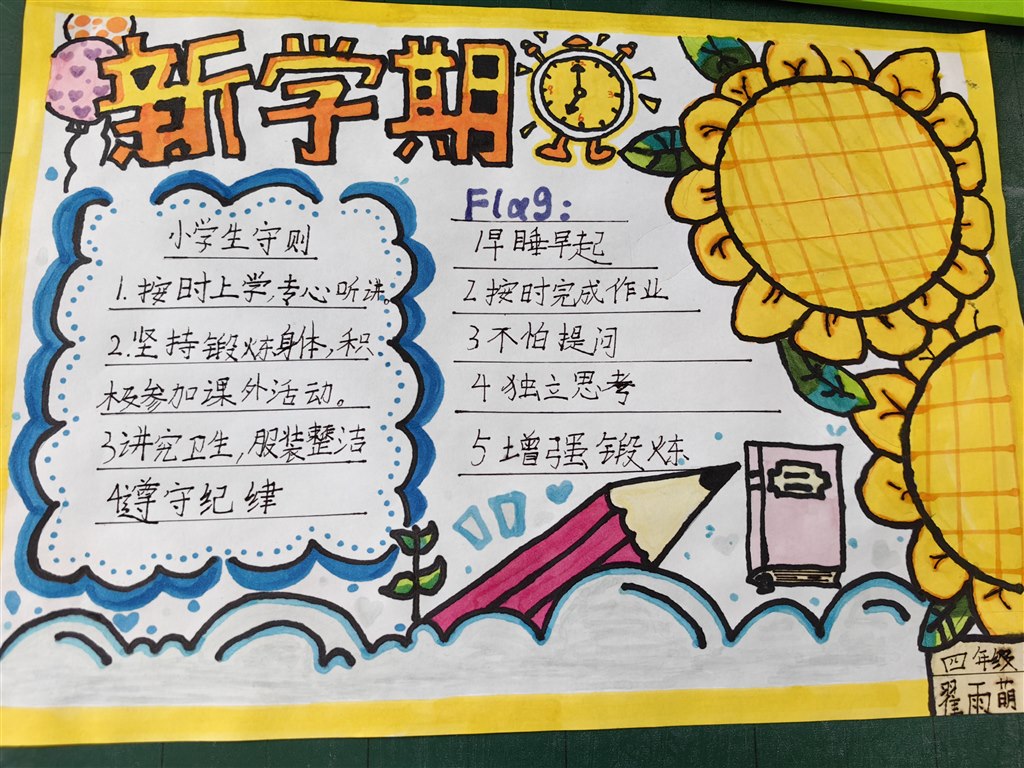 新学期
小学生守则
1.按时上学,专心听讲。
2.坚持锻炼身体,积
极参加课外活动。
3讲究卫生,服装整洁
4遵守纪律
Flag:
1早睡早起
2按时完成作业
3不怕提问
4独立思考
5增强锻炼
四年级
翟雨萌